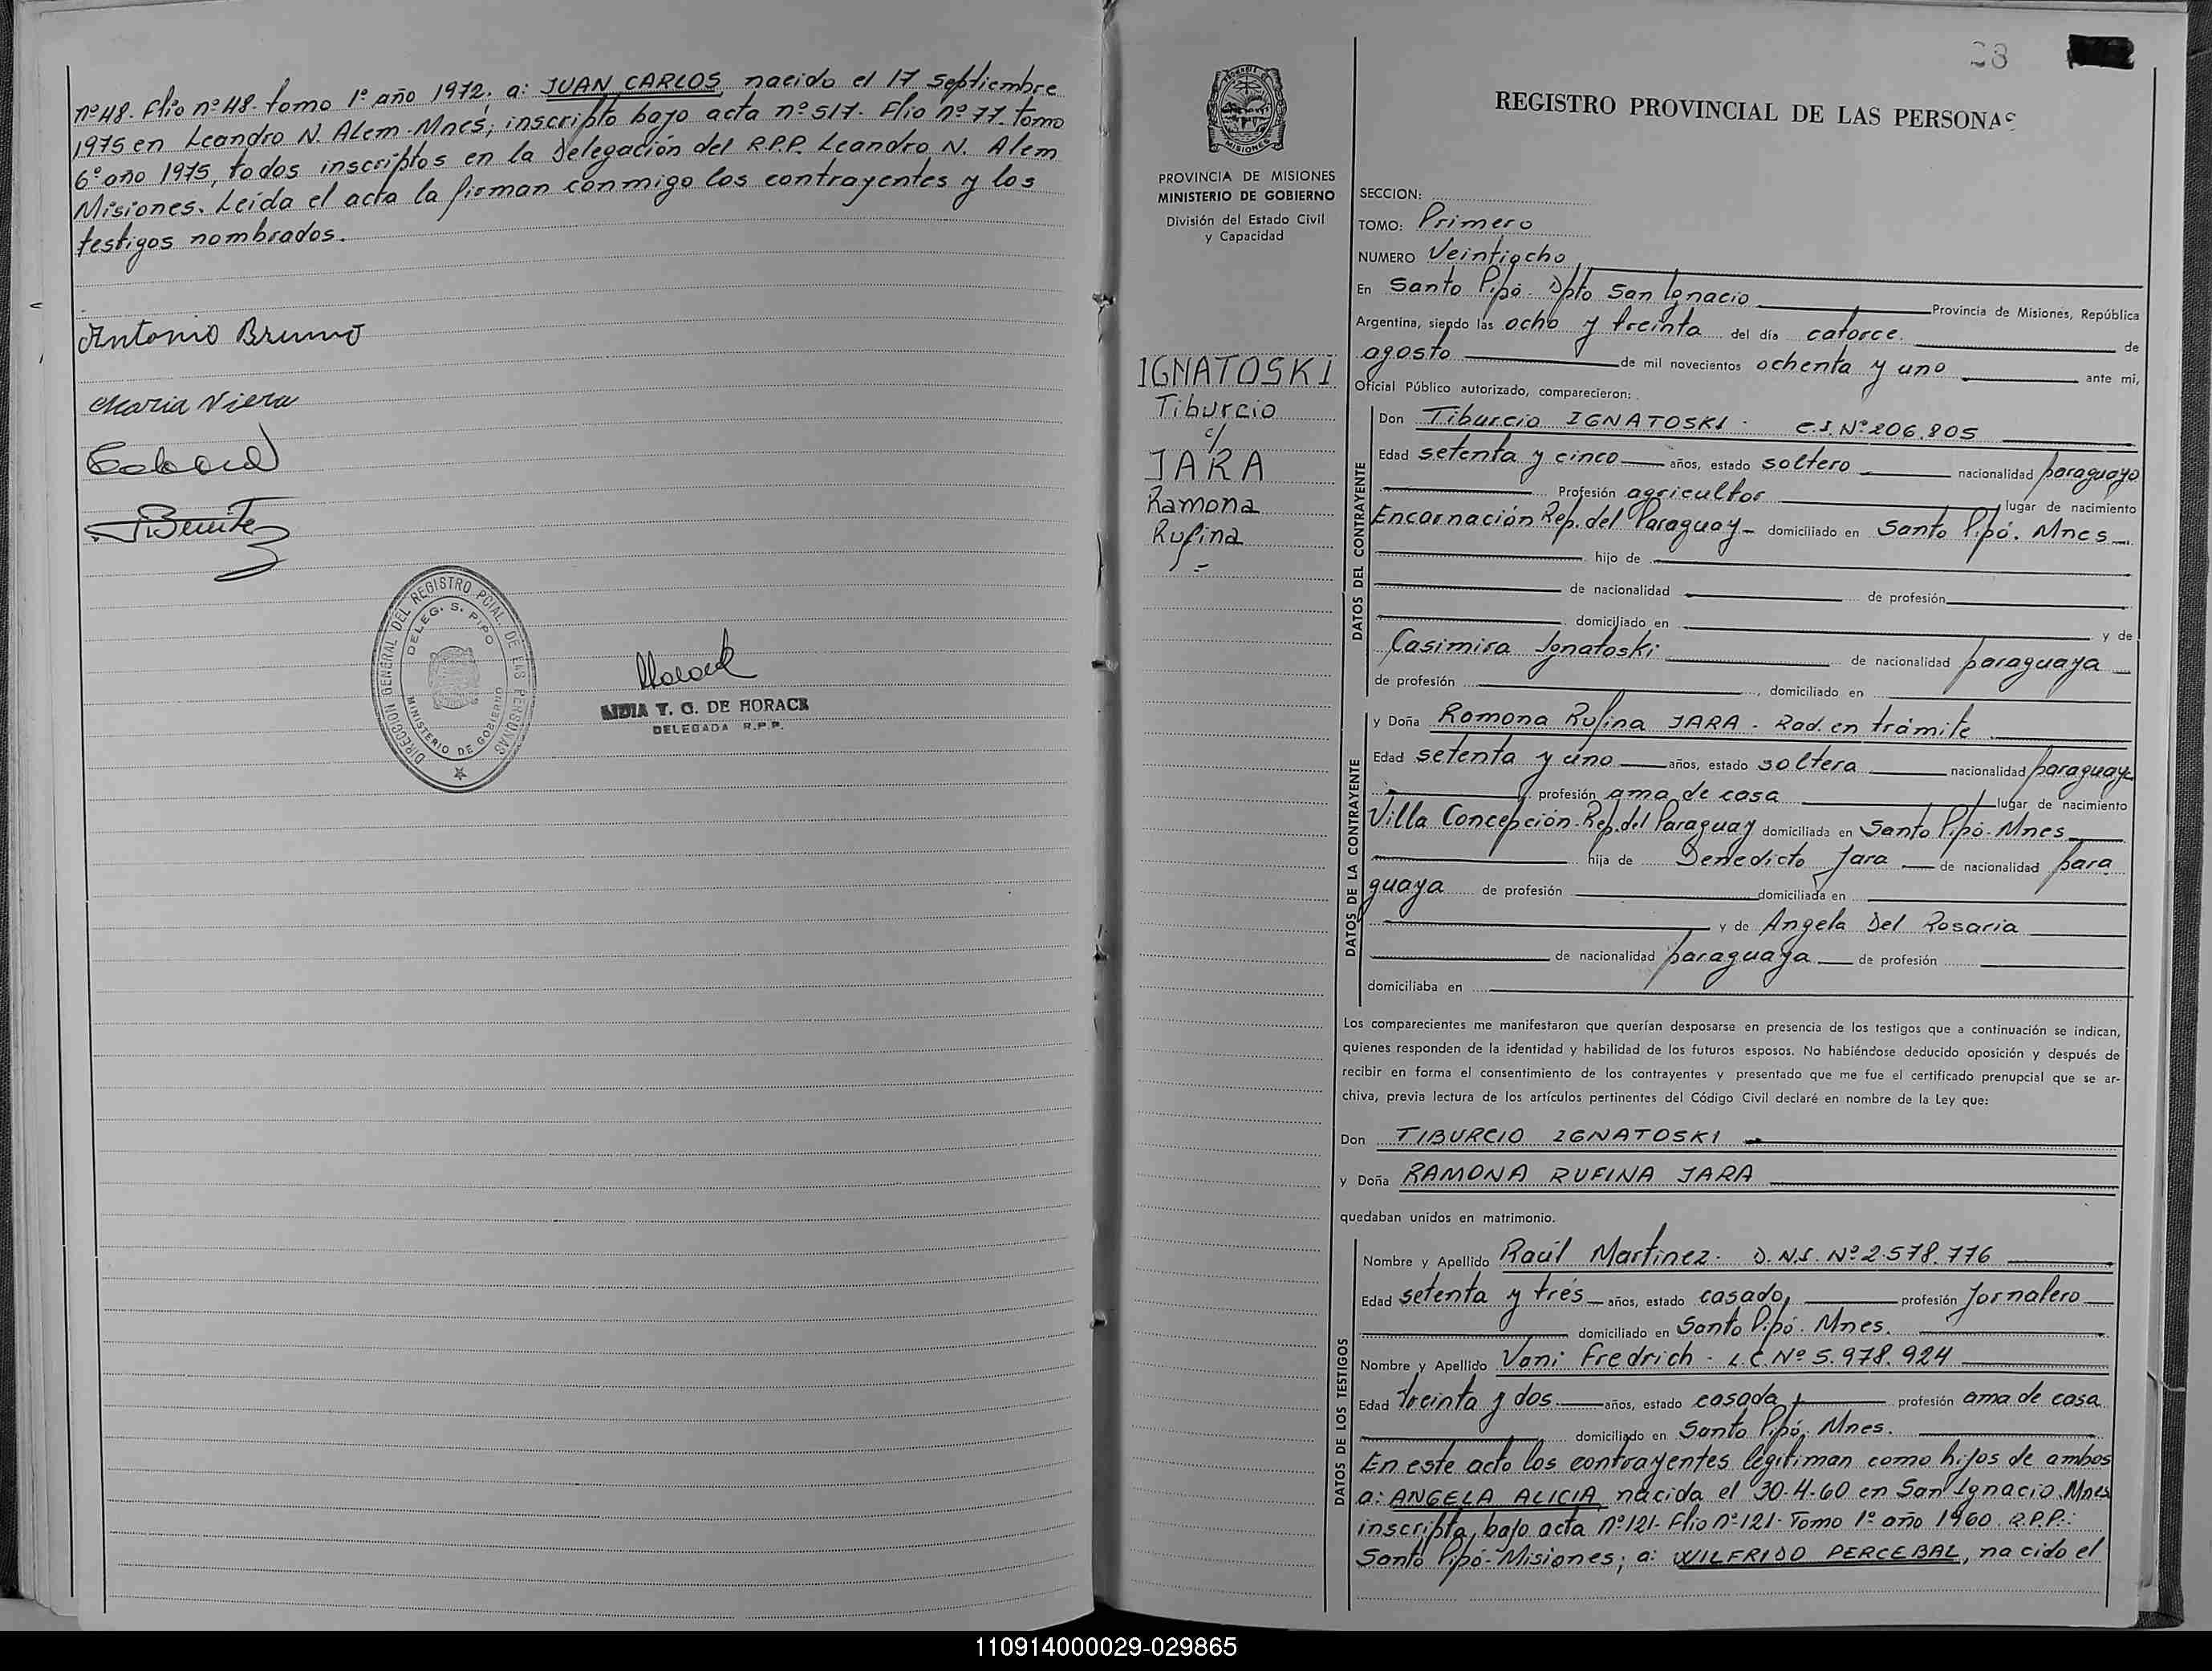 nº48. Flio nº48. tomo 1º año 1972. a: JUAN CARLOS, nacido el 17 septiembre
1975 en Leandro N. Alem-Mnes; inscripto bajo acta nº517. Flio nº77. tomo
6º año 1975, todos inscriptos en la Delegación del R.P.P. Leandro N. Alem
Misiones. Leída el acta la firman conmigo los contrayentes y los
testigos nombrados.
Antonio Bruno
Maria Viera
Benitez
DIRECCION GENERAL DEL REGISTRO PCIAL. DE LAS PERSONAS
DELEG. S. PIPO
MINISTERIO DE GOBIERNO
LIDIA T. G. DE HORACK
DELEGADA R.P.P.
28
REGISTRO PROVINCIAL DE LAS PERSONAS
MISIONES
PROVINCIA DE MISIONES
MINISTERIO DE GOBIERNO
División del Estado Civil
y Capacidad
IGNATOSKI
Tiburcio
c/
JARA
Ramona
Rufina
SECCION:
TOMO: Primero
NUMERO Veintiocho
En Santo Pipó. Dpto San Ignacio Provincia de Misiones, República
Argentina, siendo las ocho y treinta del día catorce. de
agosto de mil novecientos ochenta y uno ante mi,
Oficial Público autorizado, comparecieron:
DATOS DEL CONTRAYENTE
Don Tiburcio IGNATOSKI. C.I. Nº206.805
Edad setenta y cinco años, estado soltero nacionalidad paraguayo
Profesión agricultor lugar de nacimiento
Encarnación Rep. del Paraguay domiciliado en Santo Pipó. Mnes
hijo de
de nacionalidad de profesión
domiciliado en y de
Casimira Ignatoski de nacionalidad paraguaya
de profesión , domiciliado en
DATOS DE LA CONTRAYENTE
y Doña Ramona Rufina JARA. Rad. en trámite
Edad setenta y uno años, estado soltera nacionalidad paraguaya
profesión ama de casa lugar de nacimiento
Villa Concepción. Rep. del Paraguay domiciliada en Santo Pipó-Mnes
hija de Benedicto Jara de nacionalidad para
guaya de profesión domiciliada en
y de Angela Del Rosaria
de nacionalidad paraguaya de profesión
domiciliaba en
Los comparecientes me manifestaron que querían desposarse en presencia de los testigos que a continuación se indican,
quienes responden de la identidad y habilidad de los futuros esposos. No habiéndose deducido oposición y después de
recibir en forma el consentimiento de los contrayentes y presentado que me fue el certificado prenupcial que se ar-
chiva, previa lectura de los artículos pertinentes del Código Civil declaré en nombre de la Ley que:
Don TIBURCIO IGNATOSKI
y Doña RAMONA RUFINA JARA
quedaban unidos en matrimonio.
DATOS DE LOS TESTIGOS
Nombre y Apellido Raúl Martinez. D.N.I. Nº2.578.776
Edad setenta y trés años, estado casado, profesión Jornalero
domiciliado en Santo Pipó. Mnes.
Nombre y Apellido Vani Fredrich. L.C. Nº 5.978.924
Edad treinta y dos. años, estado casada, profesión ama de casa
domiciliado en Santo Pipó, Mnes.
En este acto los contrayentes legitiman como hijos de ambos
a: ANGELA ALICIA, nacida el 30-4-60 en San Ignacio, Mnes
inscripta, bajo acta nº121- Flio nº121- Tomo 1º año 1960. R.P.P.:
Santo Pipó-Misiones; a: WILFRIDO PERCEBAL, nacido el
110914000029-029865